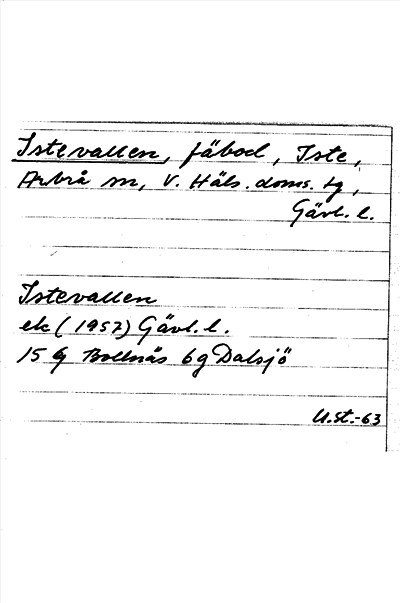 Istevallen, fäbod, Iste,
Arbrå sn, V. Häls. doms. tg,
Gävl. l.
Istevallen
ek (1957) Gävl. l.
15 G Bollnäs 6g Dalsjö
U.St.-63